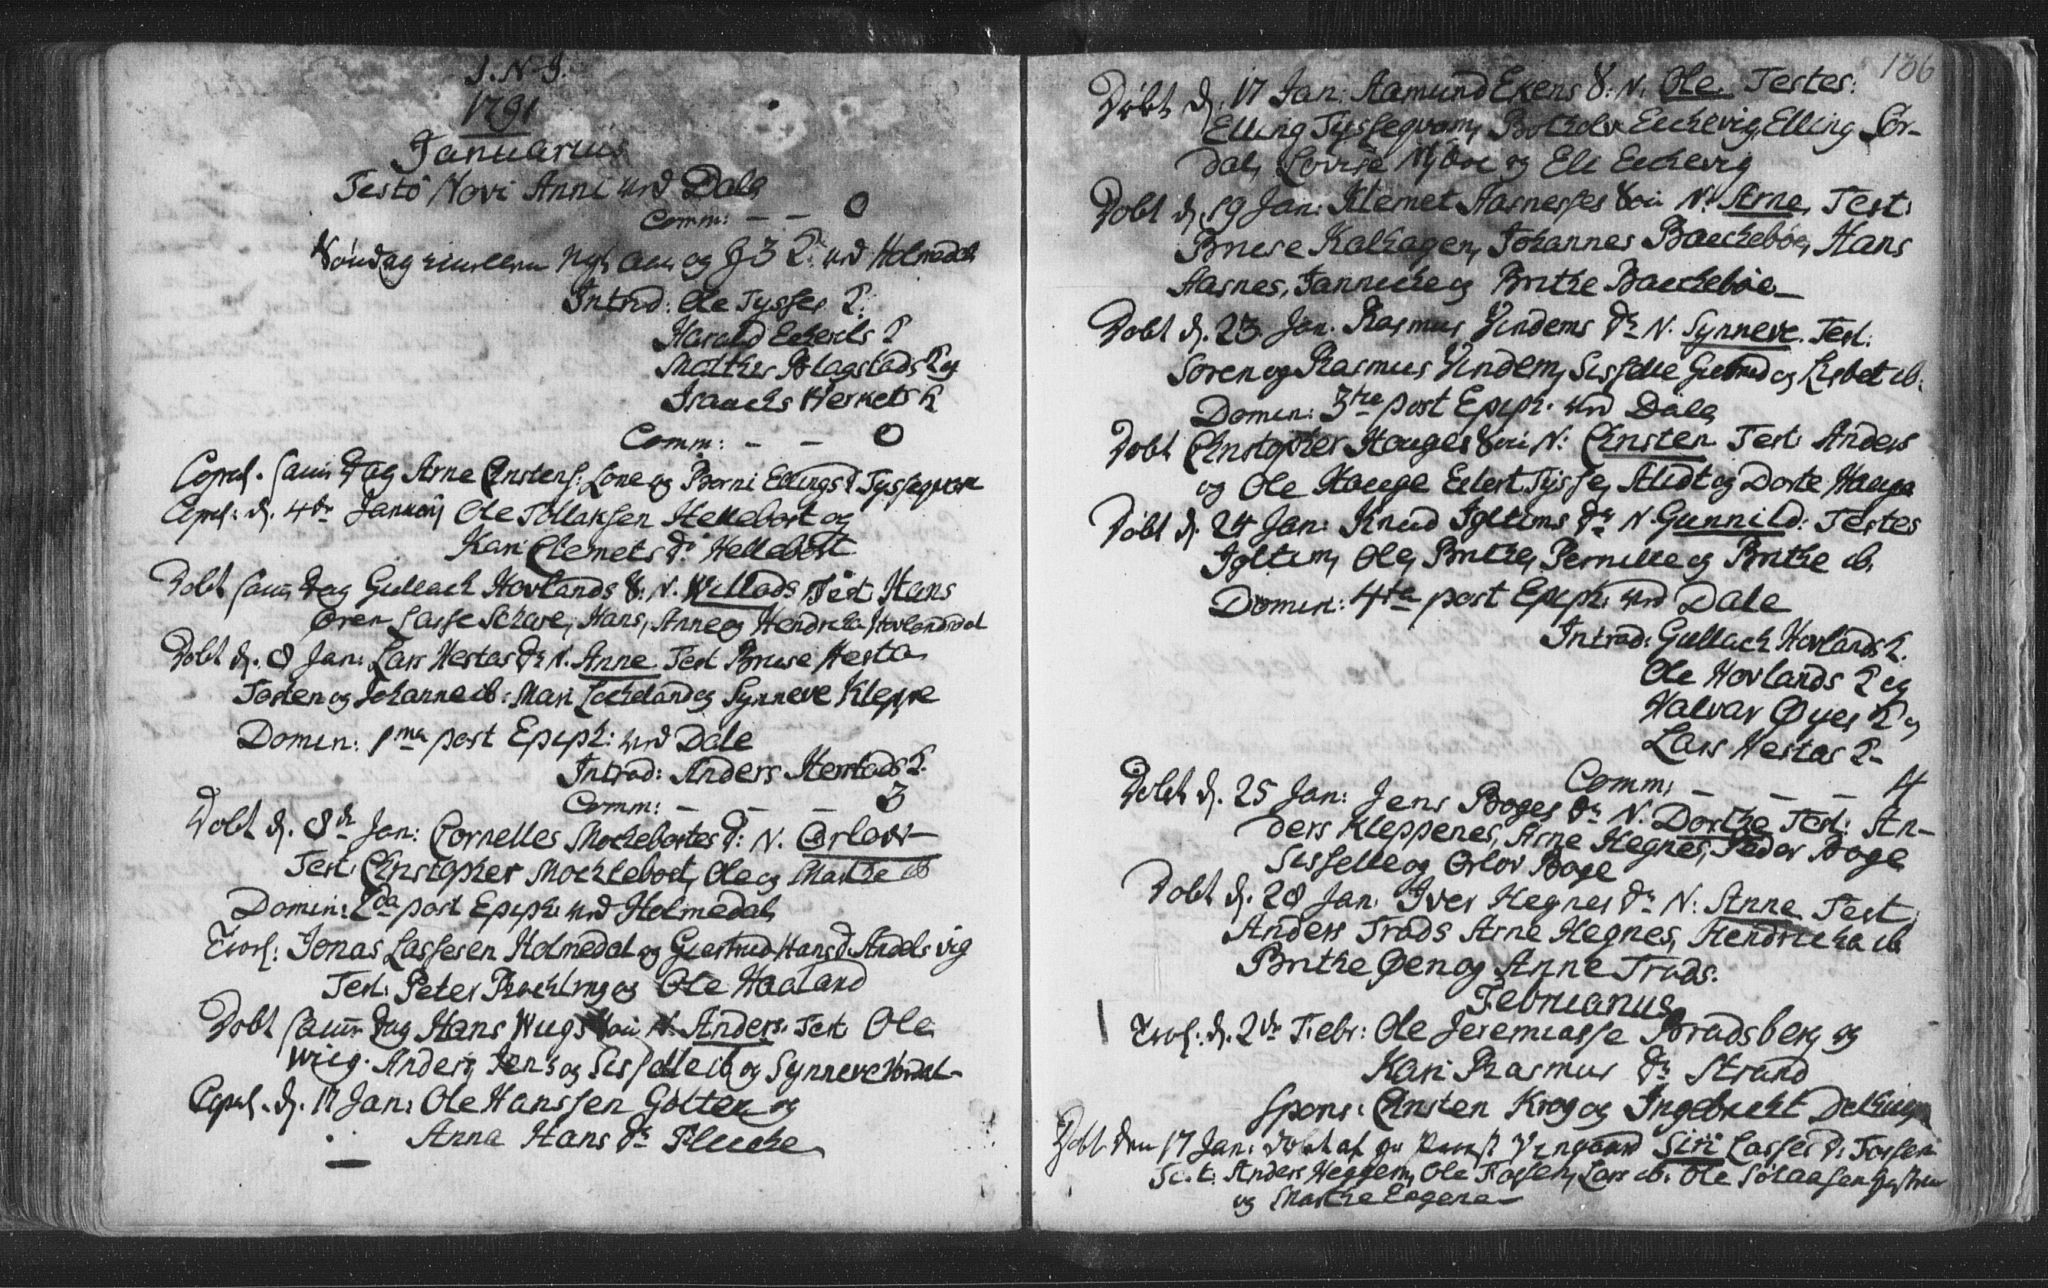 J. N. J.
1791
Januarius
Festo Novi Anni ved Dale
Comm: – – 0
Søndag imellem Nyt Aar og H 3 K: ved Holmedal
Introd: Ole Tysses K:
Harald K
Mathes Blagstads K og
K
Comm: – – 0
Copul. samme Dag Arne Christens: Lone og Berni Ellings D Tysseqvam
Copul: d. 4de Januarij Ole Tollaksen Hellebost og
Kari Clemets Dr Hellebost
Døbt samme Dag Gullach Hovlands S: N. Willads Test: Hans
Øren Lasse Schare, Hans, Anne og Hendricha Hovlandsdal
Døbt d. 8 Jan: Lars Hestas Dr N. Anne Test Bruse Hesta
Torsten og Johanne ib: Mari Locheland og Synneve Kleppe
Domin: 1ma post Epiph: ved Dale
Introd: Anders Herstads K.
Comm: – – – 3
Døbt d. 8de Jan: Cornelles Mochebostes D: N. Orlow
Test: Christopher Mochlebost, Ole og Marthe ib
Domin: 2da post Epiph: ved Holmedal
Trol: Jonas Lassesen Holmedal og Giertrud Hans D Andelsvig
Test: Peter Bechling og Ole Haaland
Døbt samme Dag Hans Wiigs Søn N. Anders. Test: Ole
Wiig. Anders, Jens og Sisselle ib og Synneve Vordal
Copul. d. 17 Jan: Ole Hanssen Gotten og
Anna Hans Dr Fleche
186
Døbt d. 17 Jan: Aamund Ekens S: N. Ole. Testes:
Elling Tysseqvam, Botholv Eichevig, Elling Sør-
dal, Lovise Myhre og Eli Eichevig
Døbt d. 19 Jan: Klemet Aarnesses Søn N. Arne, Test:
Bruse Kalhagen, Johannes Bachebøe, Hans
Aarnes, Jannicke og Brithe Bachebøe
Døbt d. 23 Jan. Rasmus Vindems Dr N. Synneve. Test:
Søren og Rasmus Vindem, Sisselle Giertrud og Lisbet ib:
Domin: 3tia post Epiph: ved Dale
Døbt Christopher Hauges Søn N: Christen Test: Anders
og Ole Hauge Eilert Tysse, Alidt og Dorte Hauge
Døbt d. 24 Jan: Knud Igltims Dr N. Gunnild: Testes
Igltim, Ole, Brithe, Pernille og Brithe ib.
Domin: 4ta post Epiph: ved Dale
Introd: Gullach Hovlands K.
Ole Hovlands K og
Halvar Øyes K og
Lars Hestas K
Comm: – – – 4
Døbt d. 25 Jan: Jens Boges Dr N. Dorthe Test: An-
ders Kleppenes, Arne Hegnes, Peder Boge
Sisselle og Orlov Boge
Døbt d. 28 Jan: Iver Hegnes Dr N: Anne Test:
Anders Trads Arne Hegnes, Hendricha ib
Brithe Øen og Anne Trads.
Februarius
Trol: d. 2de Febr: Ole Jeremiasse Bradsberg og
Kari Rasmus Dr Strand
Spons: Christen Krog og Ingebricht
Døbt den 17 Jan: døbt af Hr Siri Lasses D:
Test: Anders Heggem, Ole Fossen, Lars ib. Ole
og Marthe